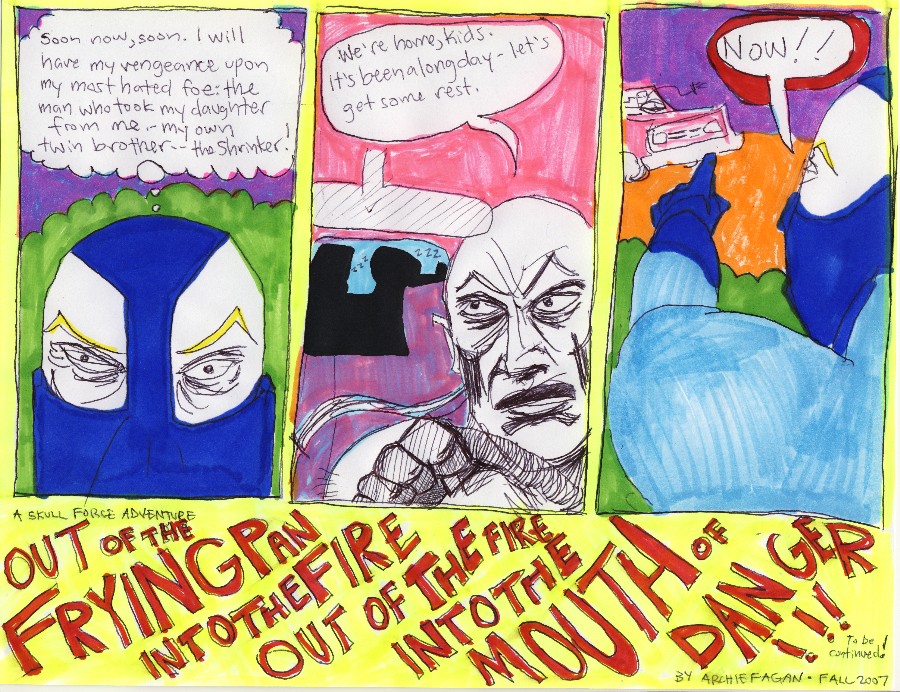 Soon now, soon. I will
have my vengeance upon
my most hated foe: the
man who took my daughter
from me -- my own
twin brother -- the Shrinker!
We're home, kids.
it's been a long day - let's
get some rest.
z z z
z z z
NOW!!
A SKULL FORCE ADVENTURE
OUT OF THE
FRYING PAN
INTO THE FIRE
OUT OF THE FIRE
INTO THE
MOUTH OF
DANGER
!!!
To be
continued!
BY ARCHIE FAGAN - FALL 2007